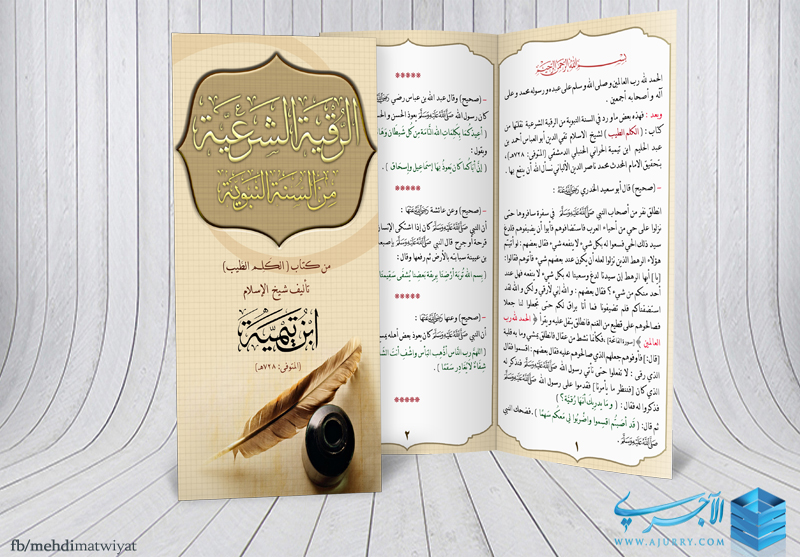 الرقية الشرعية
من السنة النبوية
من كتاب (الكلم الطيب)
تأليف شيخ الإسلام
ابن تيمية
(المتوفى: ٧٢٨هـ)
بسم الله الرحمن الرحيم
الحمد لله رب العالمين وصلى الله وسلم على عبده ورسوله محمد وعلى
آله وأصحابه أجمعين .
وبعد : فهذه بعض ما ورد في السنة النبوية من الرقية الشرعية نقلتها من
كتاب : ( الكلم الطيب ) لشيخ الإسلام تقي الدين أبو العباس أحمد بن
عبد الحليم ابن تيمية الحراني الحنبلي الدمشقي (المتوفى: ٧٢٨هـ)،
بتحقيق الامام المحدث محمد ناصر الدين الألباني نسأل الله أن ينفع بها .
- (صحيح) قال أبو سعيد الخدري
انطلق نفر من أصحاب النبي ﷺ في سفرة سافروها حتى
نزلوا على حي من أحياء العرب فاستضافوهم فأبوا أن يضيفوهم فلدغ
سيد ذلك الحي فسعوا له بكل شيء لا ينفعه شيء فقال بعضهم : لو أتيتم
هؤلاء الرهط الذين نزلوا لعله أن يكون عند بعضهم شيء فأتوهم فقالوا:
[يا] أيها الرهط إن سيدنا لدغ وسعينا له بكل شيء لا ينفعه فهل عند
أحد منكم من شيء ؟ فقال بعضهم : والله إني لأرقي ولكن والله لقد
استضفناكم فلم تضيفونا فما أنا براق لكم حتى تجعلوا لنا جعلا
فصالحوهم على قطيع من الغنم فانطلق يتفل عليه ويقرأ ﴿ الحمد لله رب
العالمين ﴾ [سورة الفاتحة] فكأنما نشط من عقال فانطلق يمشي وما به قلبة
[قال:] فأوفوهم جعلهم الذي صالحوهم عليه فقال بعضهم : اقسموا فقال
الذي رقى : لا تفعلوا حتى نأتي رسول الله ﷺ فنذكر له
الذي كان [فننظر ما يأمرنا] فقدموا على رسول الله ﷺ
فذكروا له فقال : ( وما يدريك أنها رقية ؟ )
ثم قال: ( قد أصبتم اقسموا واضربوا لي معكم سهما ) . فضحك النبي
ﷺ .
١
*****
- (صحيح) وقال عبد الله بن عباس رضي
كان رسول الله ﷺ يعوذ الحسن والح
( أعيذكما بكلمات الله التامة من كل شيطان وها
ويقول :
( إن أباكما كان يعوذ بها إسماعيل وإسحاق ) .
*****
- (صحيح) وعن عائشة
أن النبي ﷺ كان إذا اشتكى الإنسا
قرحة أو جرح قال النبي ﷺ بإصبعه
بن عيينة سبابته بالأرض ثم رفعها وقال :
( بسم الله تربة أرضنا بريقة بعضنا يشفى سقيمنا
*****
- (صحيح) وعنها
أن النبي ﷺ كان يعوذ بعض أهله يمس
( اللهم رب الناس أذهب الباس واشف أنت الش
شفاء لا يغادر سقما ) .
*****
٢
fb/mehdimatwiyat
الآجري
WWW.AJURRY.COM